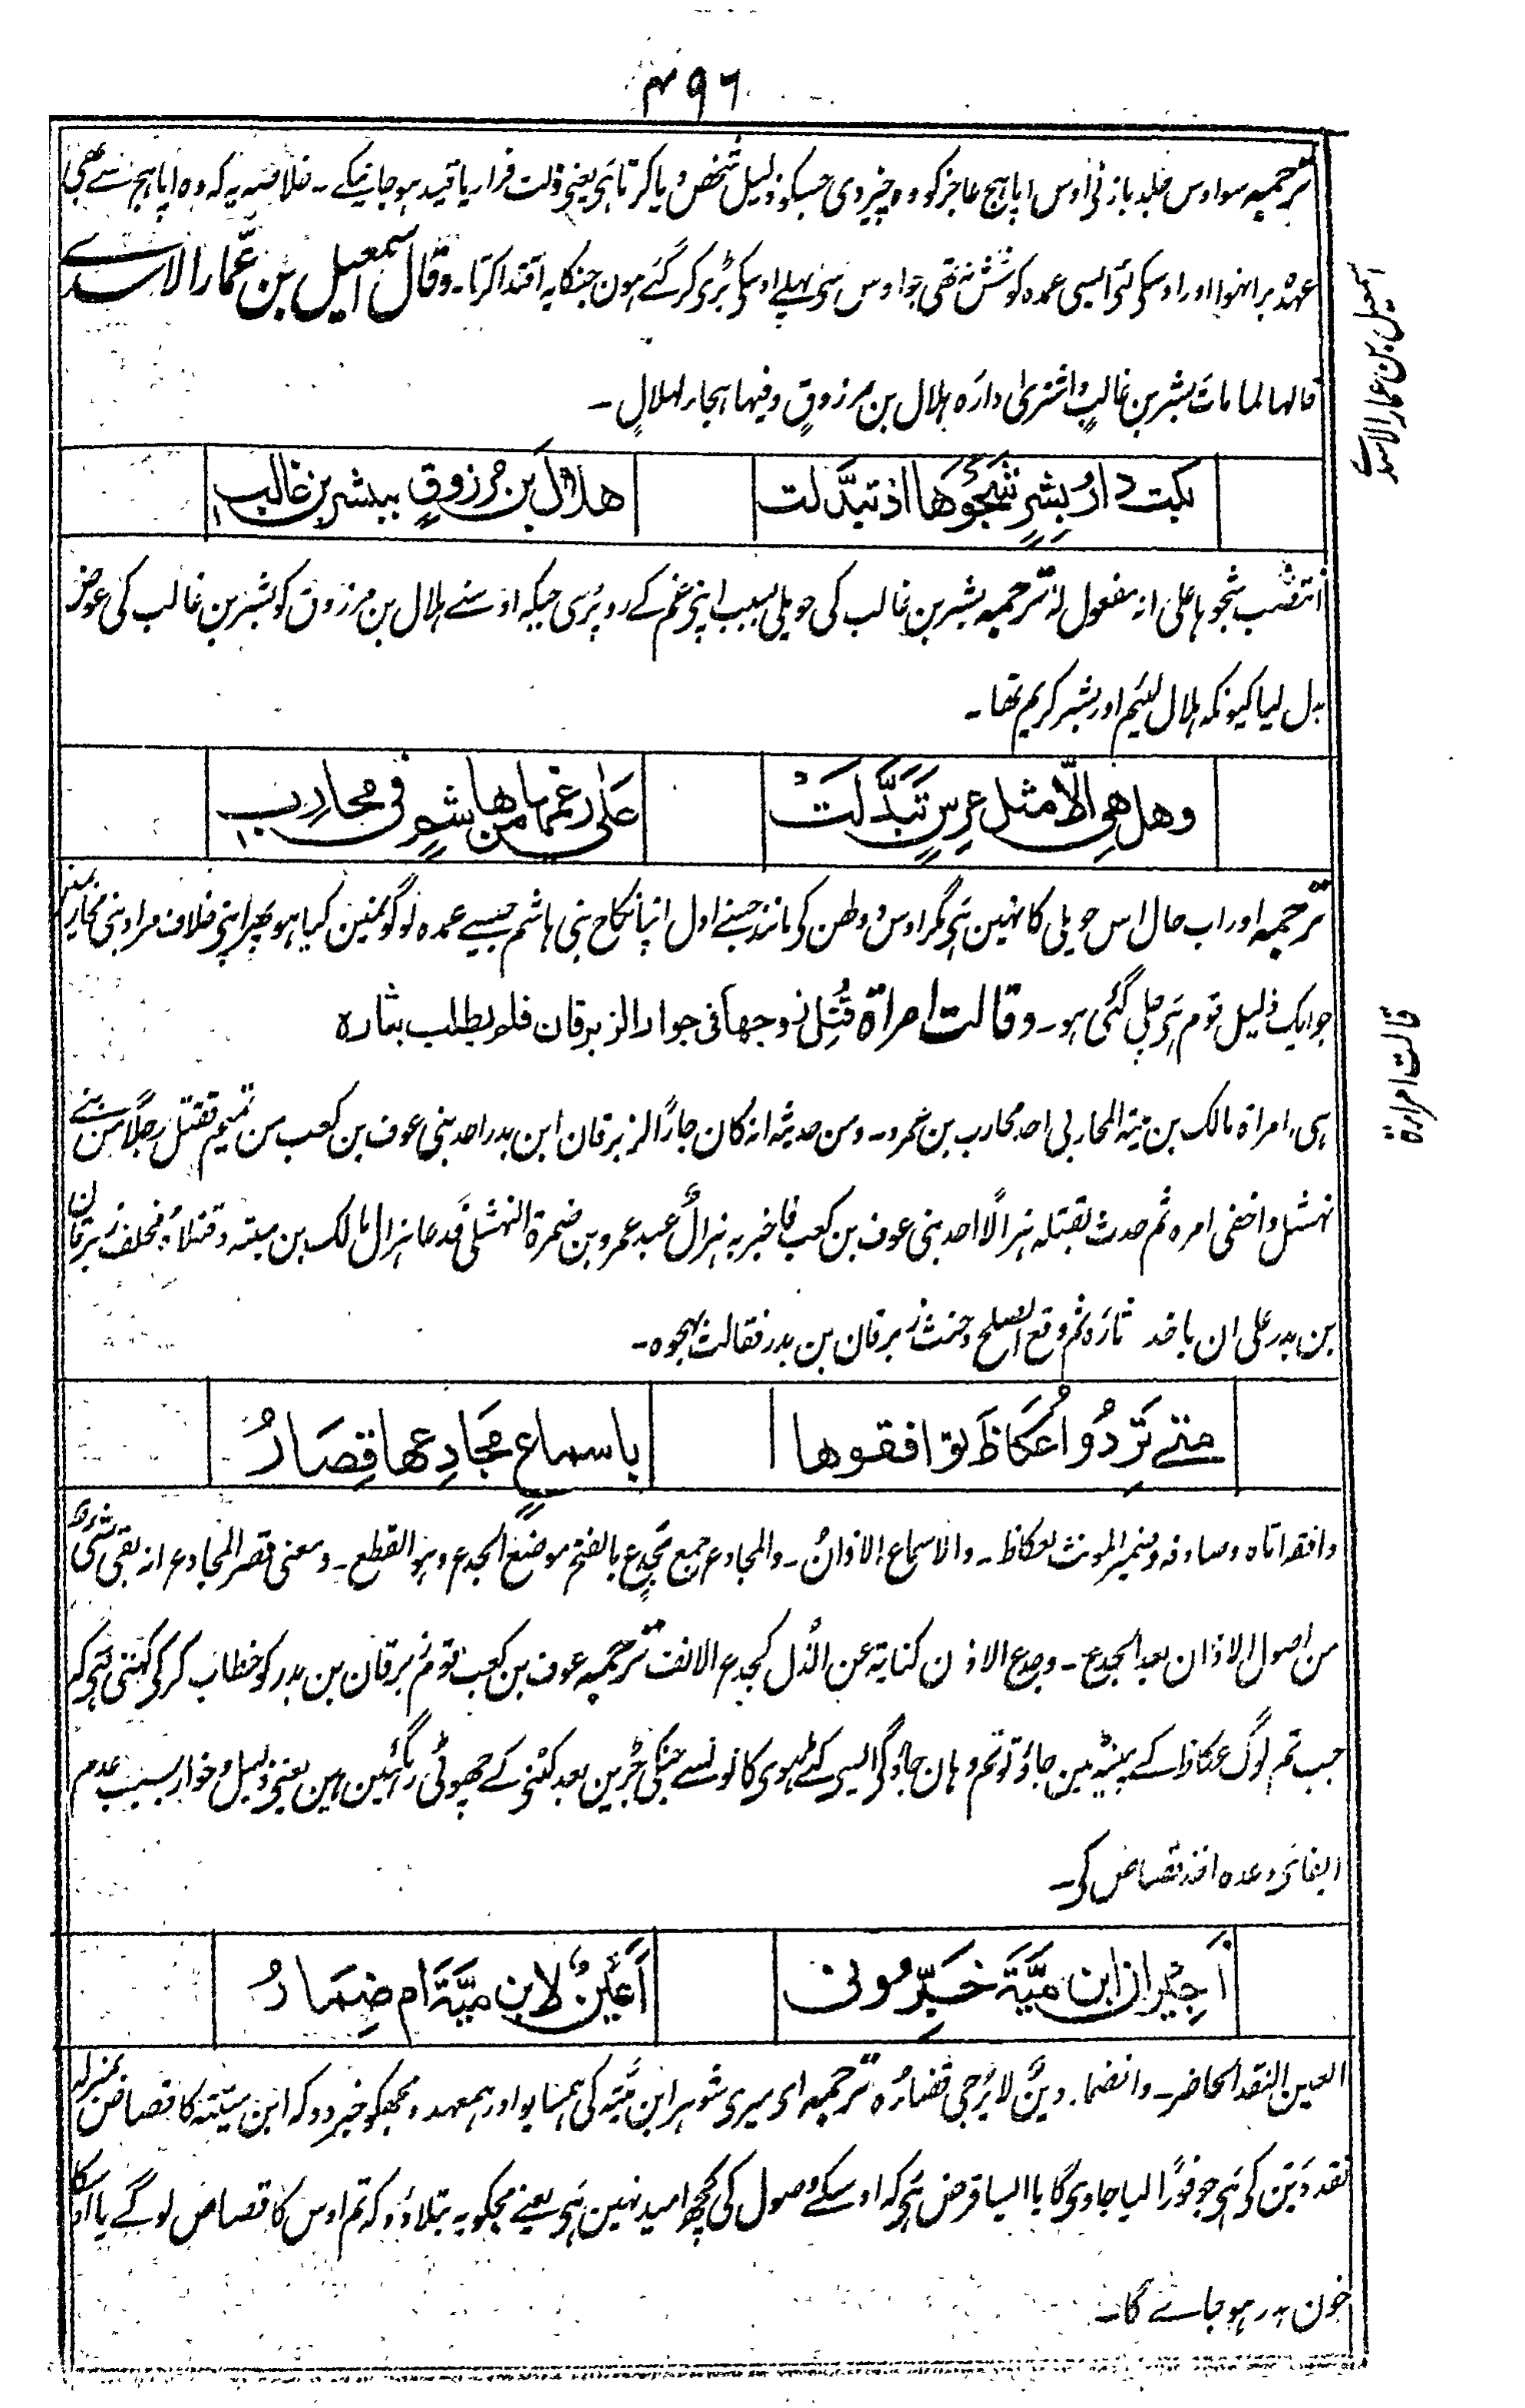 ۴۹۶
ترجمہ سو اوس جلد باز نی اوس اپاہج عاجز کو وہ چیز دی جسکو ذلیل شخص دیا کرتا ہی یعنی ذلت فرار یا قید ہو جانیکے ۔ خلاصہ یہ کہ وہ اپاہج سے بھی
عہدہ برا نہوا اور اوسکی لئی ایسی عمدہ کوشش نتھی جو اوس سی پہلے اوسکی بڑی کر گئے ہون جنکا یہ اقتدا کرتا ۔ وقال اسمعیل بن عمار الاسدے
اسمعیل بن عمار الاسدے
قالہا لما مات بشر بن غالبٍ واشتری دارَہ ہلال بن مرزوقٍ وفیہا ہجاء لہلالٍ ۔
بکت دارُ بِشرٍ شَجْوَها اذ تبدَّلت
هلالَ بن مرزوقٍ ببشر بن غالب
انتصب شجوہا علی انہ مفعول لہ ترجمہ بشر بن غالب کی حویلی بسبب اپنی غم کے رو پڑی جبکہ اوسنے ہلال بن مرزوق کو بشر بن غالب کی عوض
بدل لیا کیونکہ ہلال لئیم اور بشر کریم تھا ۔
وهل هِی الّا مثل عِرسٍ تَبَدَّلَتْ
عَلٰی رغمها من هاشمٍ فی محارِب
ترجمہ اور اب حال اس حویلی کا نہین ہی مگر اوس دولہن کی مانند جسنے اول اپنا نکاح بنی ہاشم جیسے عمدہ لوگونمین کیا ہو پھر اپنی خلاف مراد بنی محارب مین
جو ایک ذلیل قوم ہی چلی گئی ہو ۔ وقالت امراة قُتِل زوجها فی جوار الزبرقان فلم یطلب بثاره
قالت امراة
ہی امراة مالک بن میّة المحاربی احد محارب بن عمرو ۔ ومن حدیثہ انہ کان جارًا لزبرقان ابن بدر احد بنی عوف بن کعب من تمیم فقتل رجلًا من بنے
نہشل واخفی امرہ ثم حدث بقتلہ ہزالًا احد بنی عوف بن کعب فاخبر بہ ہزالٌ عبد عمرو بن ضمرة النہشلی فدعا ہزال مالک بن میتہ وقتلاہ فحلف زبرقان
بن بدر علی ان یاخذ ثارَہ ثم وقع الصلح وحنث زبرقان بن بدر فقالت تہجوہ ۔
متے تَرِدُوا عُکاظَ توافقوها
باسماعٍ مَجادِعها قِصَارُ
وافقہ اتاہ وصادفہ وضمیر المونث لعکاظ ۔ والاسماع الاذانُ ۔ والمجادع جمع مَجدِع بالفتح موضع الجدع وہو القطع ۔ ومعنی قصر المجادع انہ بقی شئ
من اصول الاذان بعد الجدع ۔ وجدع الاذن کنایة عن الذل کجدع الانف ترجمہ عوف بن کعب قوم زبرقان بن بدر کو خطاب کر کی کہتی ہی کہ
جب تم لوگ عکاظ کے پینٹھ مین جاؤ تو تم وہان جاؤگی ایسی کٹے ہوی کانونسے جنکی جڑین بعد کٹنی کے چھوٹی رہگئین ہین یعنی ذلیل وخوار بسبب عدم
ایفای وعدہ اخذ قصاص کی ۔
أَجِیرانَ ابن میَّةَ خَبِّرونی
أَعَینٌ لابن میَّةَ ام ضِمَارُ
العین النقد الحاضر ۔ والضمار دینٌ لا یُرجی قضاؤہ ترجمہ ای میری شوہر ابن میّة کی ہمسایو اور ہمعہدو مجھکو خبر دو کہ ابن میّتہ کا قصاص بمنزلہ
نقد دَین کی ہی جو فوراً لیا جاویگا یا ایسا قرض ہی کہ اوسکے وصول کی کچھ امید نہین ہی یعنے مجکو یہ بتلاؤ کہ تم اوس کا قصاص لو گے یا اوسکا
خون ہدر ہو جاے گا ۔